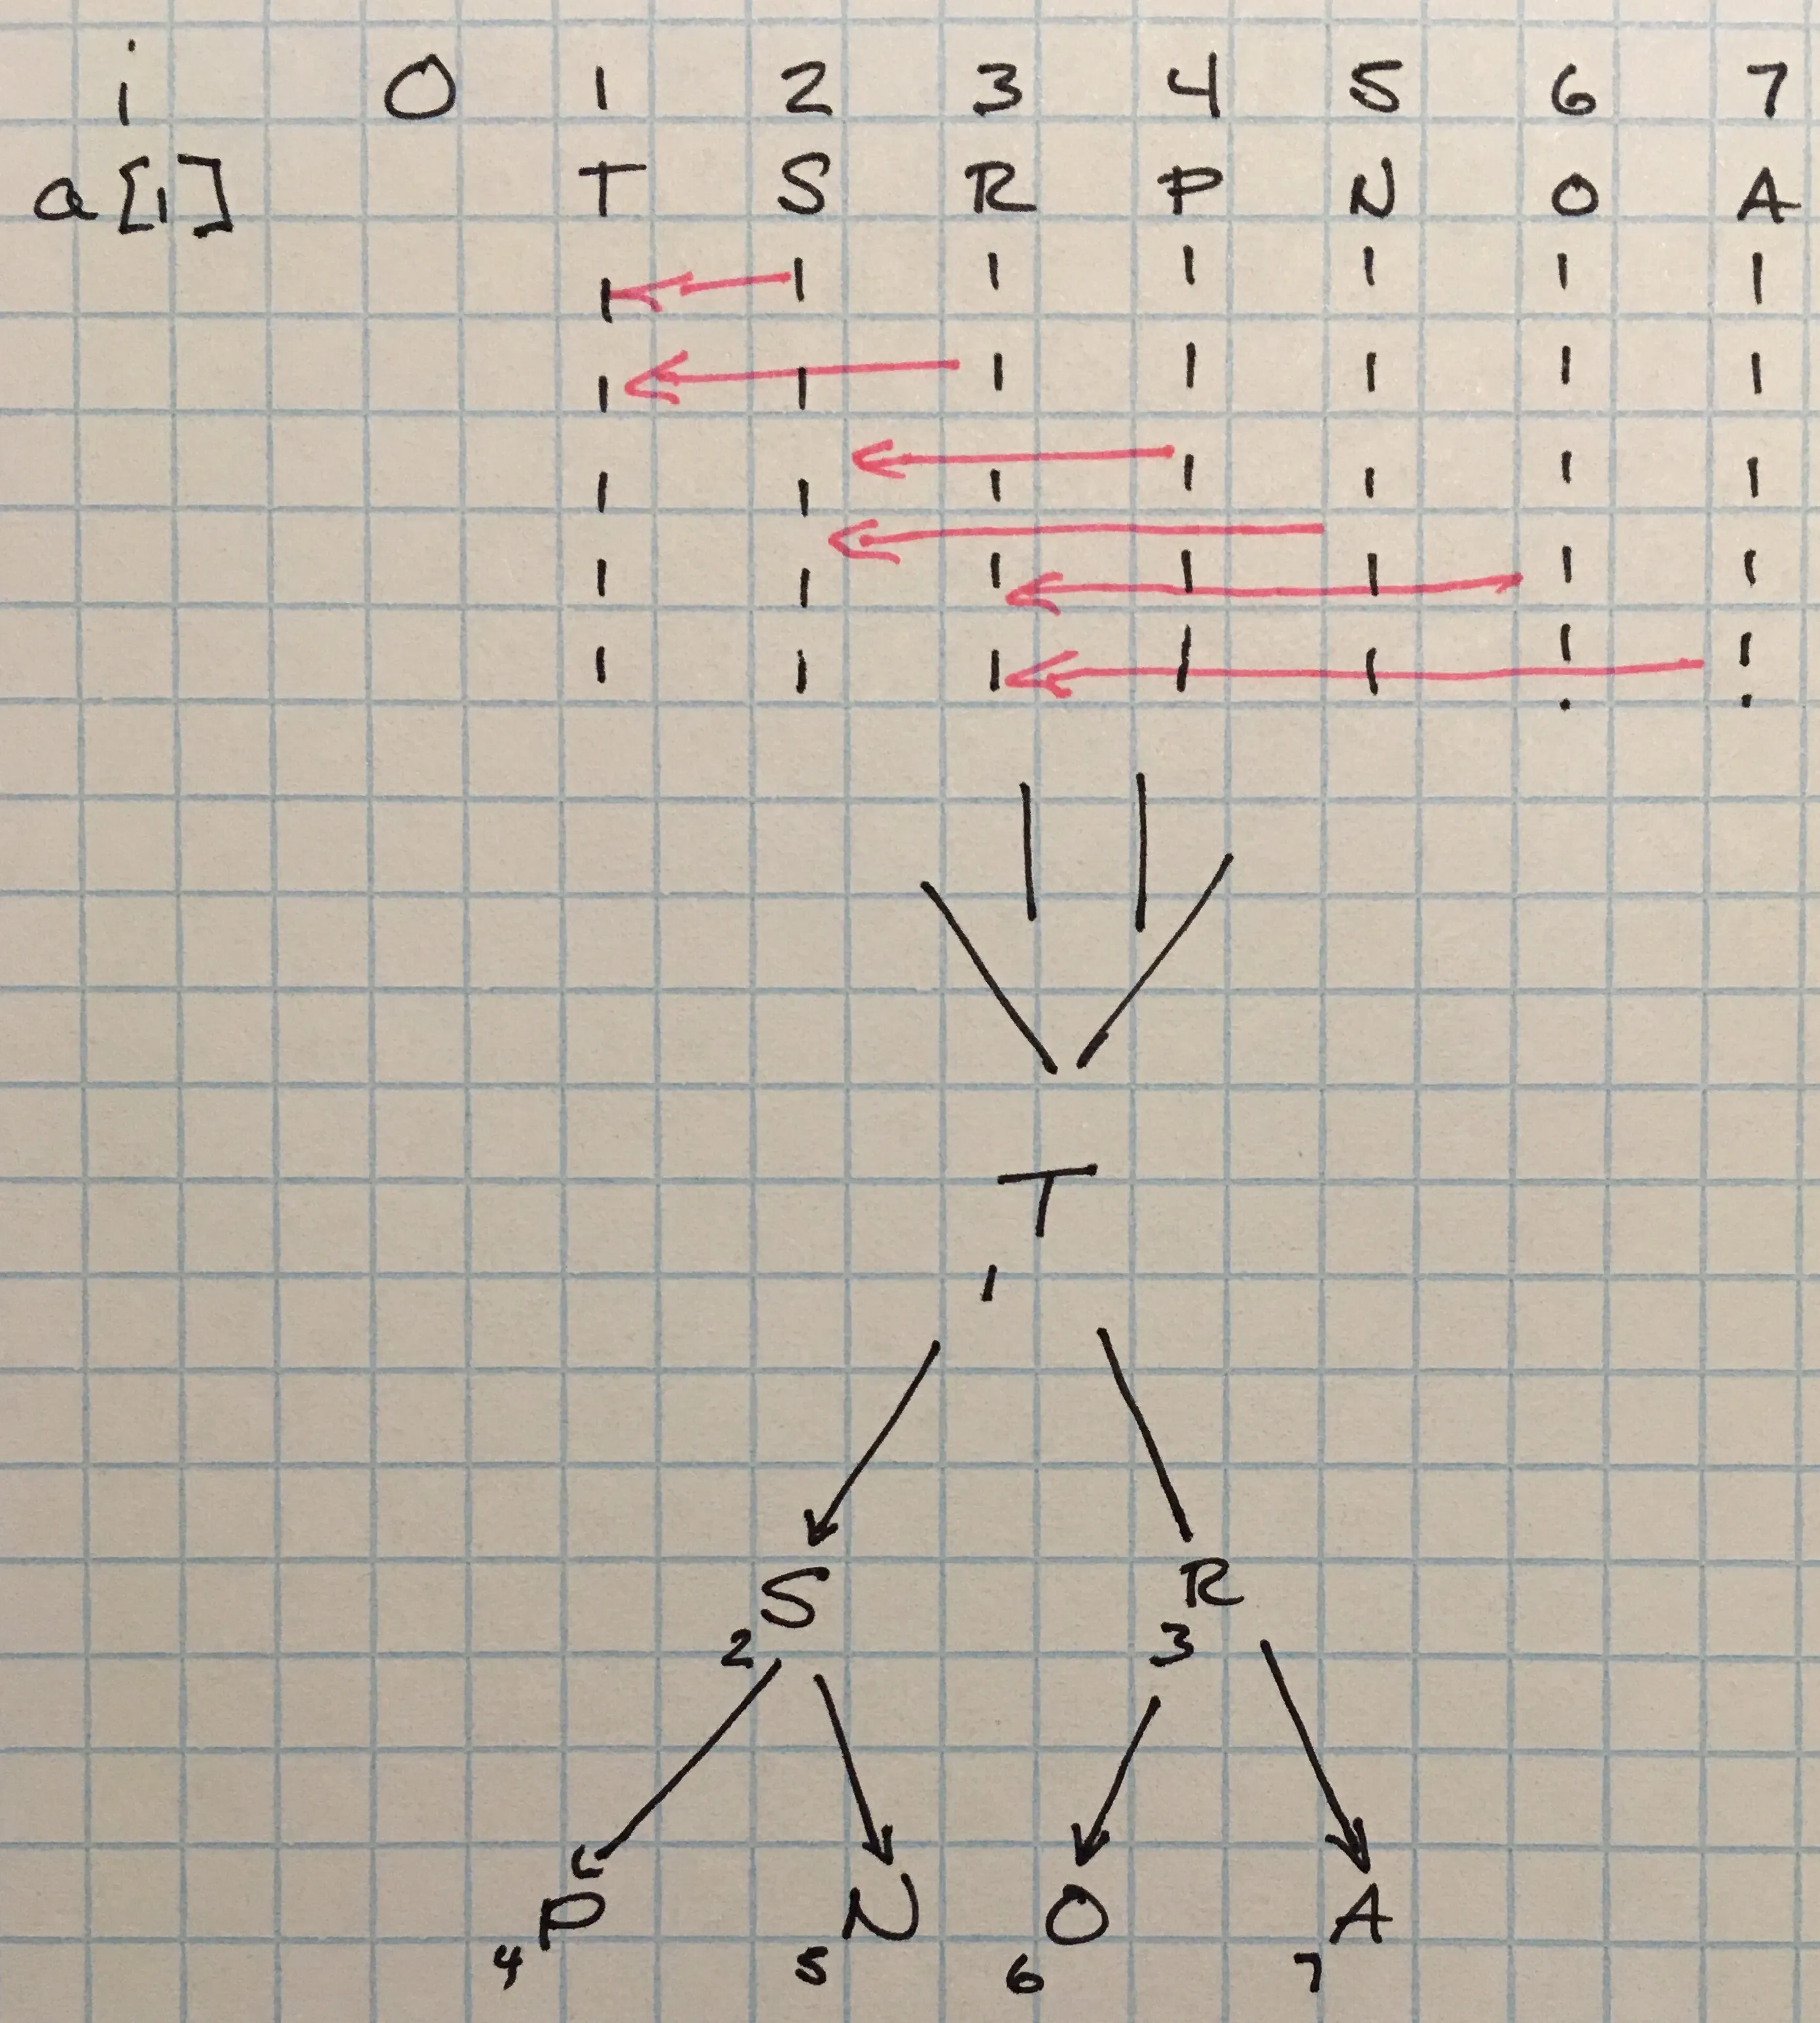 i 0 1 2 3 4 5 6 7
a[i] T S R P N O A
T
1
S R
2 3
P N O A
4 5 6 7